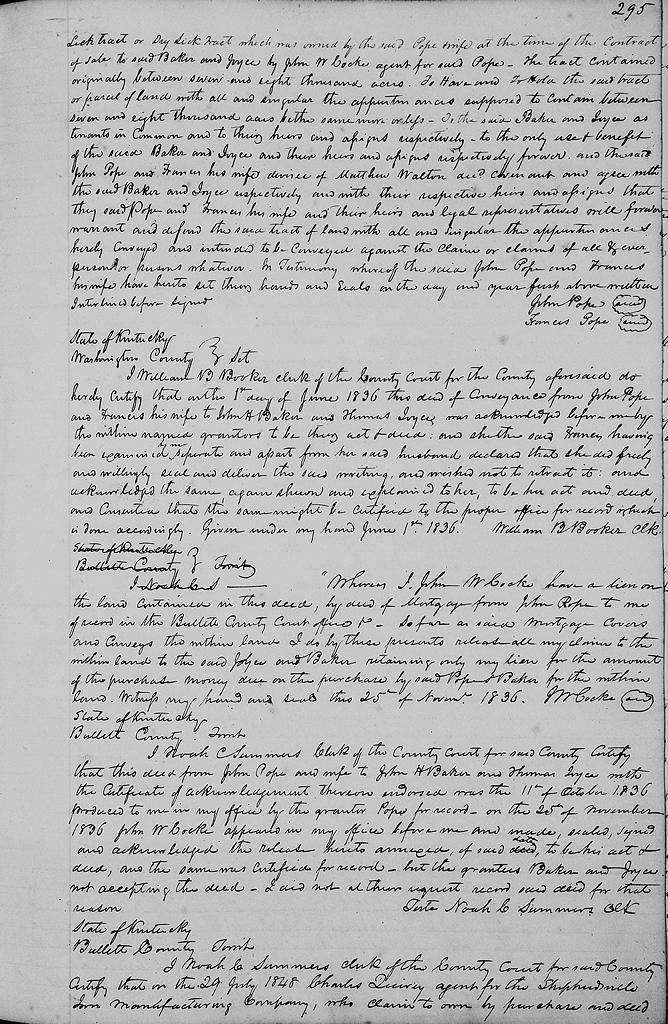 295
Lick tract or Dry Lick tract which was owned by the said Pope & wife at the time of the Contract
of sale to said Baker and Joyce by John W Cocke agent for said Pope - the tract contained
originally between seven and eight thousand acres. To Have and To Hold the said tract
or parcel of land with all and singular the appurtenances supposed to contain between
seven and eight thousand acres be the same more or less - To the said Baker and Joyce as
tenants in Common and to their heirs and assigns respectively - to the only use & benefit
of the said Baker and Joyce and their heirs and assigns respectively forever. and the said
John Pope and Francis his wife devisee of Matthew Walton decd covenant and agree with
the said Baker and Joyce respectively and with their respective heirs and assigns that
they said Pope and Francis his wife and their heirs and legal representatives will forever
warrant and defend the said tract of land with all and singular the appurtenances
hereby Conveyed and intended to be Conveyed against the claim or claims of all & every
person or persons whatever. In Testimony whereof the said John Pope and Francis
his wife have hereto set their hands and seals on the day and year first above written
Interlined before signed
John Pope (seal)
Francis Pope (seal)
State of Kentucky
Washington County } Sct
I William B Booker clerk of the County Court for the County aforesaid do
hereby certify that on the 1st day of June 1836 this deed of Conveyance from John Pope
and Francis his wife to John H Baker and Thomas Joyce, was acknowledged before me by
the within named grantors to be their act & deed: and she the said Francis having
been examined by me separate and apart from her said husband declared that she did freely
and willingly seal and deliver the said writing, and wished not to retract it: and
acknowledged the same again shewn and explained to her, to be her act and deed,
and Consented that the same might be certified to the proper office for record which
is done accordingly. Given under my hand June 1st 1836. William B Booker Clk.
State of Kentucky
Bullitt County } Torrit
I Noah C S "Whereas I. John W Cocke have a lien on
the land contained in this deed, by deed of Mortgage from John Pope to me
of record in the Bullitt County Court office &c - So far as said Mortgage Covers
and Conveys the within land I do by these presents release all my claim to the
within land to the said Joyce and Baker retaining only my lien for the amount
of the purchase money due on the purchase by said Pope & Baker for the within
land. Witness my hand and seal this 25th of Novemr. 1836. J W Cocke (seal)
State of Kentucky
Bullitt County Torrit
I Noah C Summers Clerk of the County Court for said County Certify
that this deed from John Pope and wife to John H Baker and Thomas Joyce with
the Certificate of acknowledgement thereon endorsed was the 11th of October 1836
produced to me in my office by the grantor Pope for record - on the 25th of November
1836 John W Cocke appeared in my office before me and made, sealed, signed
and acknowledged the release hereto annexed, of said deed, to be his act &
deed, and the same was Certified for record - but the grantees Baker and Joyce
not accepting the deed - I did not at their request record said deed for that
reason Teste Noah C Summers Clk
State of Kentucky
Bullitt County Torrit
I Noah C Summers clerk of the County Court for said County
Certify that on the 29 July 1848 Charles Quirey agent for the Shepherdsville
Iron Manufacturing Company, who claim to own by purchase and deed